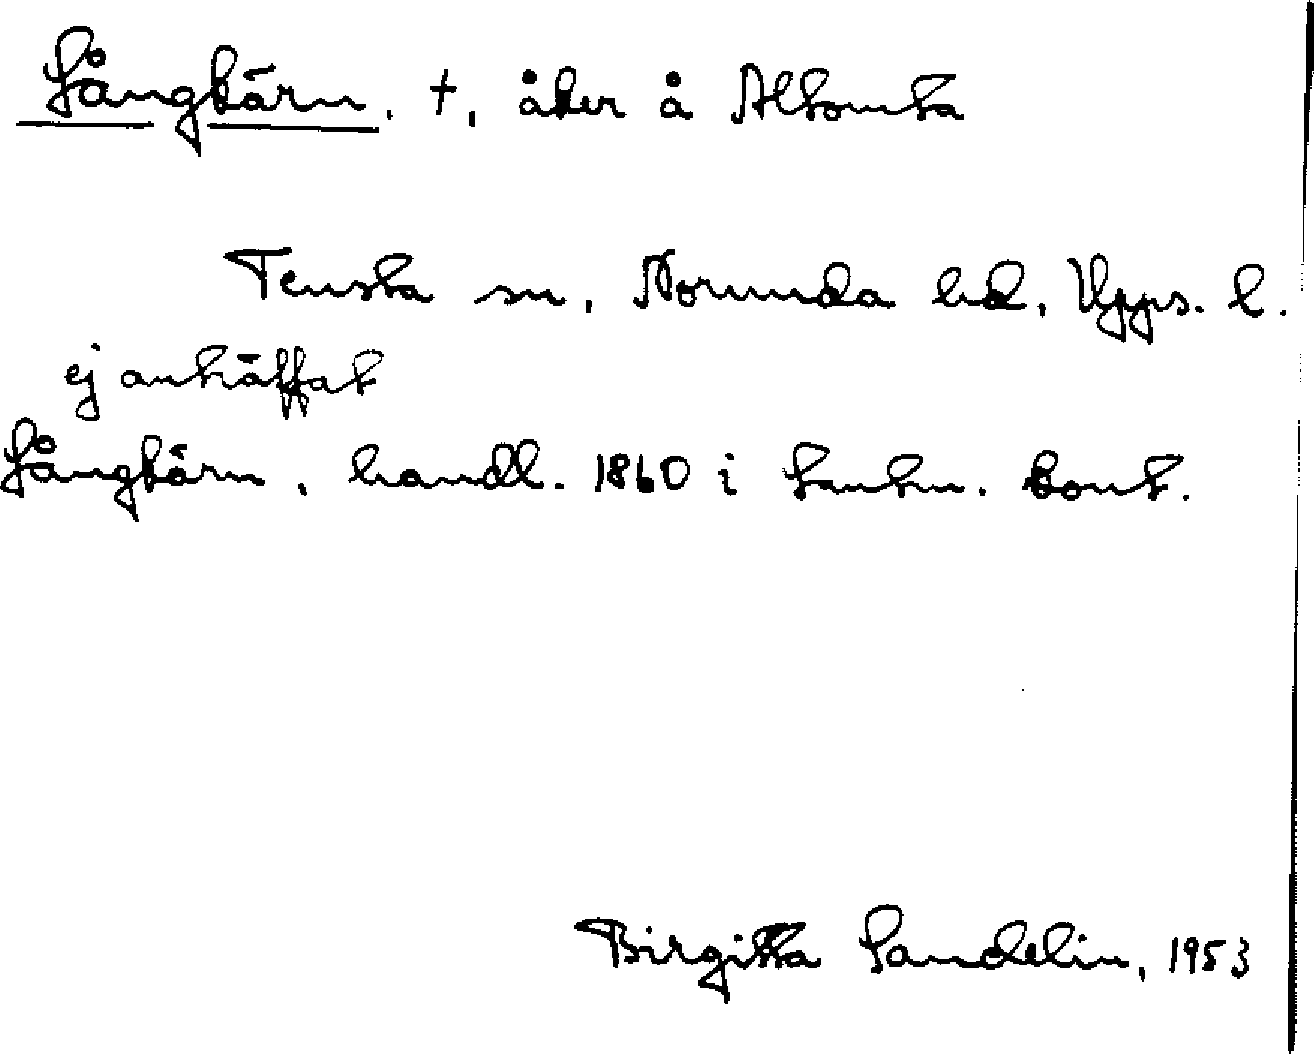 Långtärn, †, åker å Altomta
Tensta sn, Norunda hd, Upps. l.
ej anträffat
Långtärn, handl. 1860 i Lantm. kont.
Birgitta Sandelin, 1953